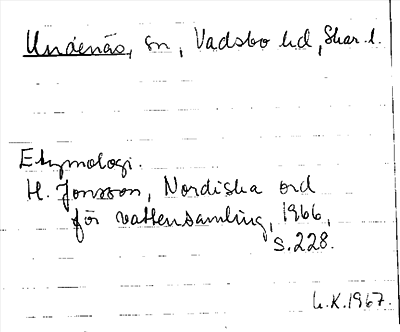 Undenäs, sn, Vadsbo hd, Skar. l.
Etymologi.
H. Jonsson, Nordiska ord
för vattensamling, 1966,
s. 228.
L.K. 1967.